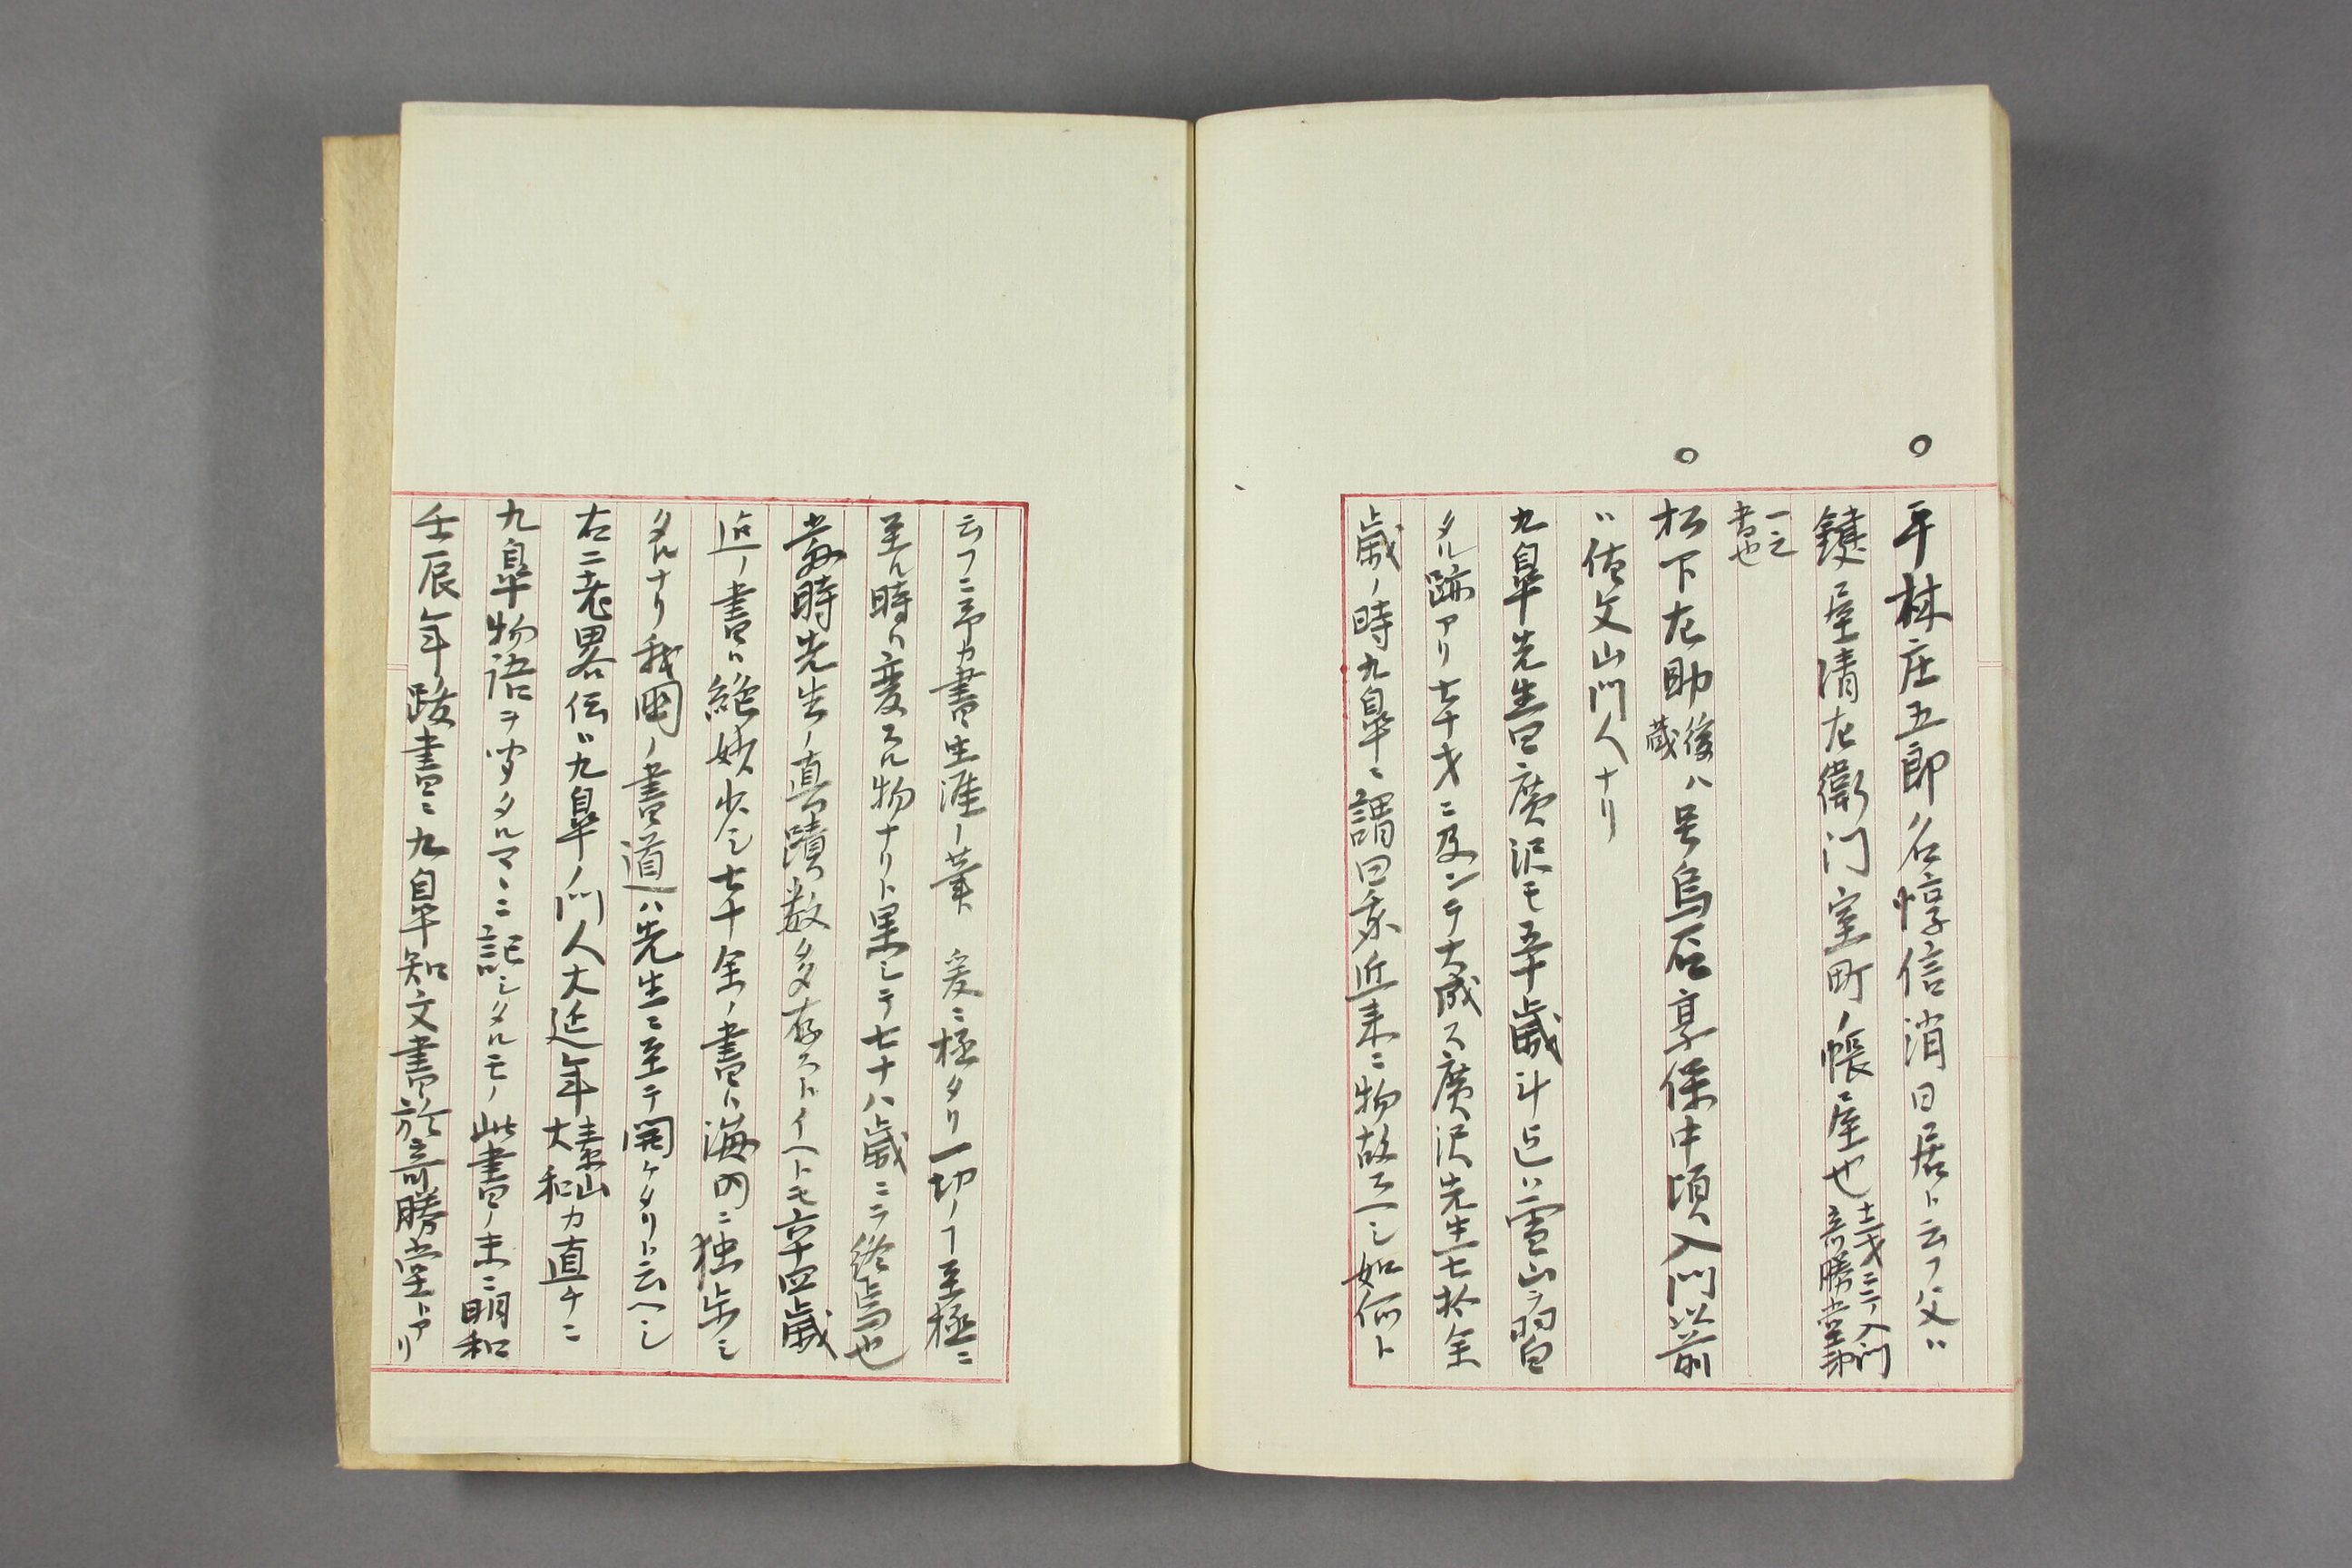 ○平林庄五郎名惇信消日居ト云フ父ハ
鍵屋清左衛门室町ノ帳屋也 十二才ニテ入門
奇勝堂印
一之
書也
○松下左助 後ハ号烏石享保中頃入門以前
蔵
ハ佐文山門人ナリ
九皐先生曰廣沢モ五十歳斗迠ハ雪山ヲ習
タル跡アリ七十才ニ及ンテ大成ス廣沢先生七拾余
歳ノ時九皐ニ謂曰我近来ニ物故スヘシ如何ト
云フニ予カ書生涯ノ業 爰ニ極タリ一切ノヿ至極ニ
至ル時ハ変スル物ナリト果シテ七十八歳ニテ終焉也
當時先生ノ真蹟数多存ストイヘトモ六十四歳
迠ノ書ハ絶妙少シ七十余ノ書ハ海内ニ独歩シ
タルナリ我國ノ書道ハ先生ニ至テ開ケタリト云ヘシ
右二老畧伝ハ九皐ノ門人大延年 素山
大和 カ直チニ
九皐物語ヲ聞タルマヽニ記シタルモノ此書ノ末ニ明和
壬辰年ノ跋書ニ九皐知文書於奇勝堂トアリ